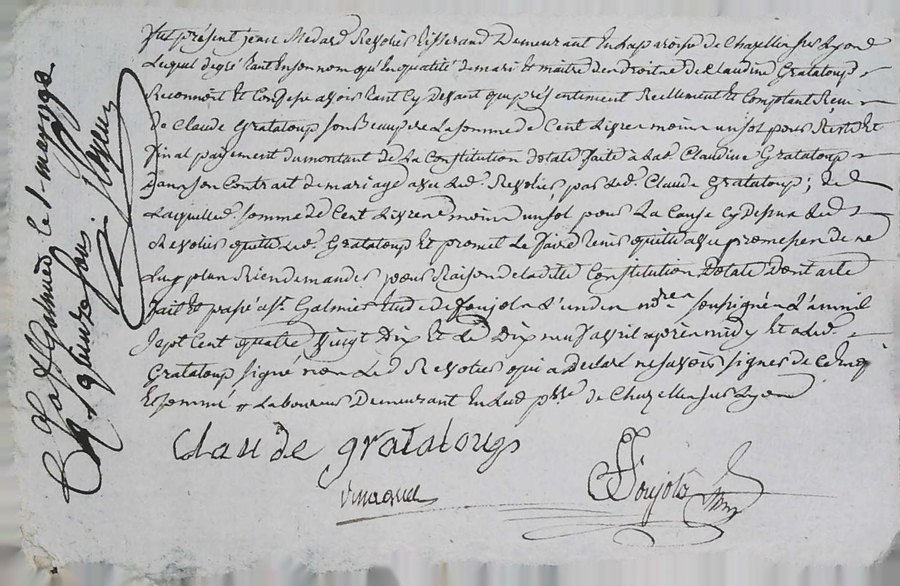 fut présent jean Médard Revolier tisserand Demeurant En la paroisse de Chazelles sur Lyon
Lequel de gré tant En son nom qu'En qualité de mari Et maître des droits de Claudine Grataloup
Reconnoit Et Confesse avoir tant Cy Devant que présentement Réellement Et Comptant Reçu
De Claude Grataloup son Beaupère La somme de Cent Livres moins un sol pour Reste Et
final payement du montant de La Constitution Dotale faite à lad. Claudine Grataloup
Dans son Contrat de mariage avec led. Revolier, par led. Claude Grataloup; de
Laquelle d. somme de Cent Livres moins un sol pour La Cause Cy Dessus Led.
Revolier quitte led. Grataloup Et promet Le faire tenir quitte avec promesse de ne
Luy plus Rien demander pour Raison de la dite Constitution Dotale Dont acte
fait Et passé à St. Galmier Etude de foujols L'un des nres. soussignés L'an mil
Sept Cent quatre Vingt Dix Et Le Dix neuf avril après midy Et a led.
Grataloup signé non Led. Revolier qui a Déclaré ne savoir signer de Ce Enquis
Et sommé # Laboureur Demeurant En lad. psse. de Chazelles sur Lyon
Claude grataloup
foujols
à St Galmier le 1er may 1790
quinze sols